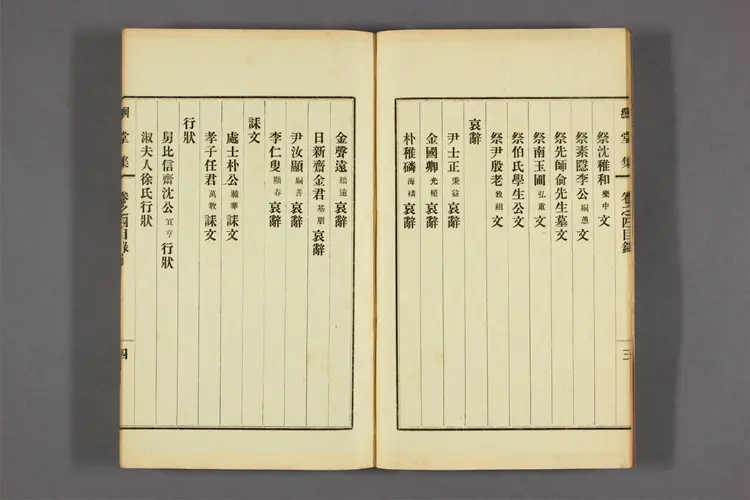 堂集
卷之四目錄
三
祭沈稚和 樂中 文
祭素隱李公 嗣愚 文
祭先師俞先生墓文
祭南玉圃 弘薰 文
祭伯氏學生公文
祭尹殷老 致組 文
哀辭
尹士正 秉益 哀辭
金國卿 光補 哀辭
朴稚磷 海磷 哀辭
堂集
卷之四目錄
四
金聲遠 聲遠 哀辭
日新齋金君 基磨 哀辭
尹汝顯 嗣善 哀辭
李仁叟 顯春 哀辭
誄文
處士朴公 誠華 誄文
孝子任君 萬敎 誄文
行狀
舅比信齋沈公 宜亨 行狀
淑夫人徐氏行狀